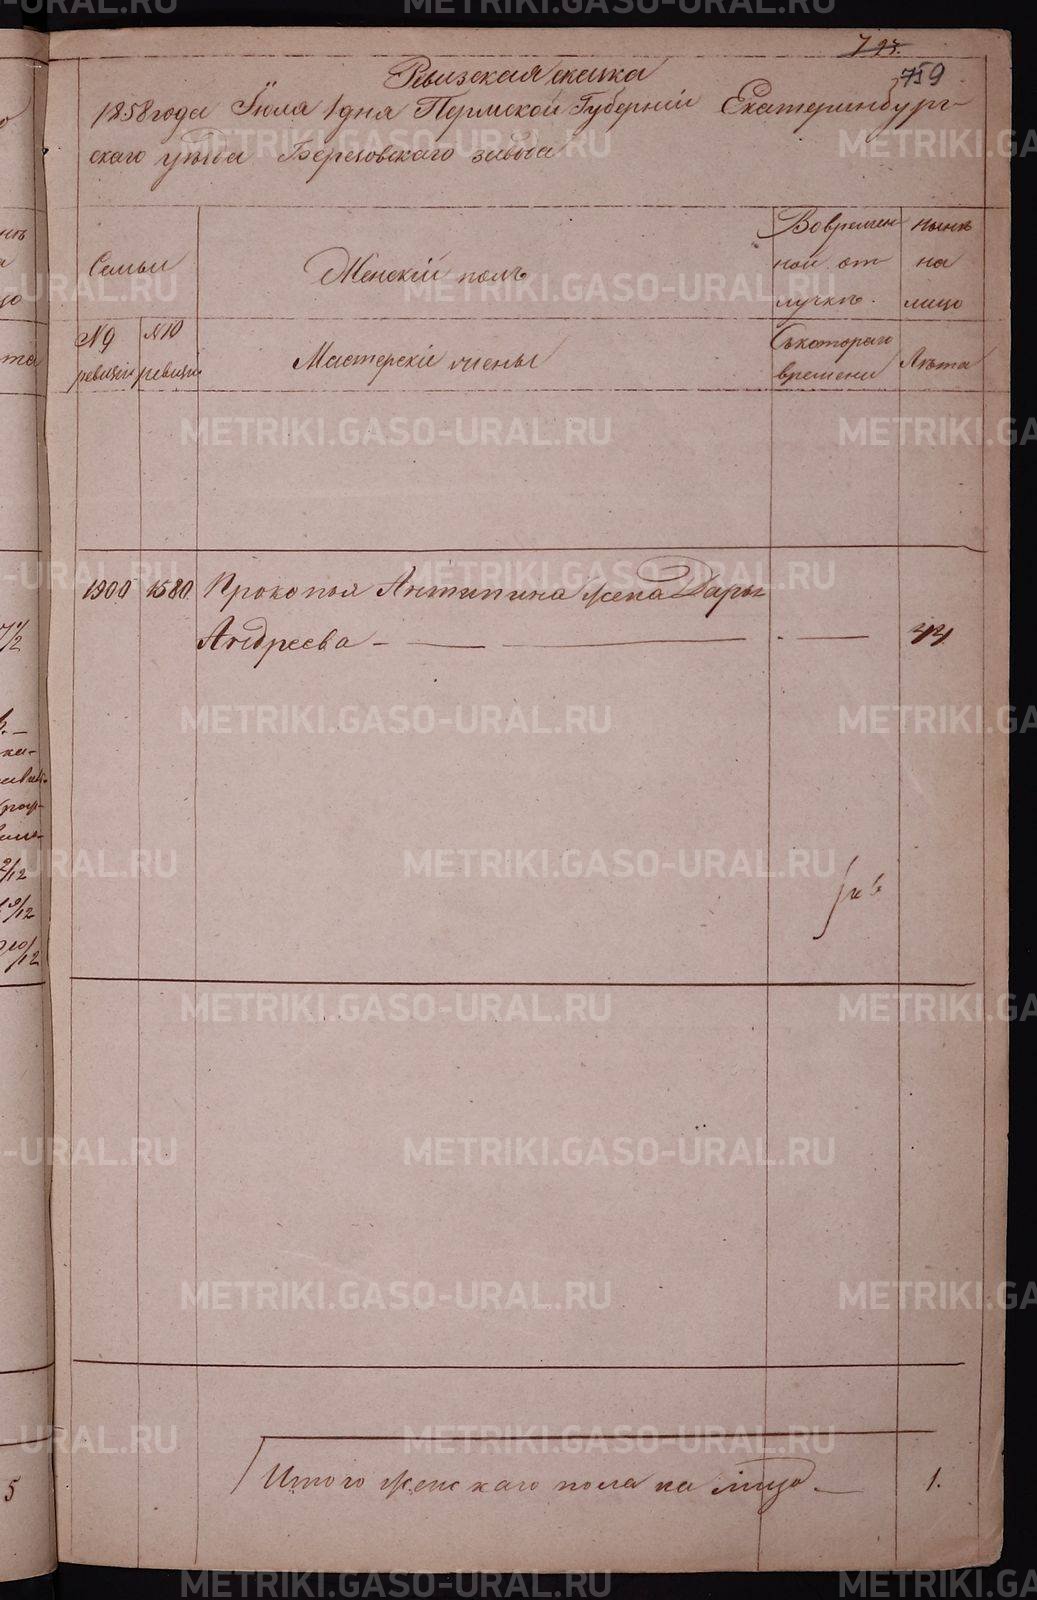 759
Ревизская сказка
1858 года Июля 1 дня Пермской Губернiи Екатеринбург-
скаго уѣзда Березовскаго завода
Семьи
Женскiй полъ
Вовремен
ной от
лучкѣ.
нынѣ
на
лицо
№ 9
ревизiи
№ 10
ревизiи
Мастерскiе члены
Съкотораго
времени
Лѣта
1900 1580 Прокопья Антипина жена Дарья
Андреева - 44
Итого женскаго пола на лицо 1.
5
METRIKI.GASO-URAL.RU